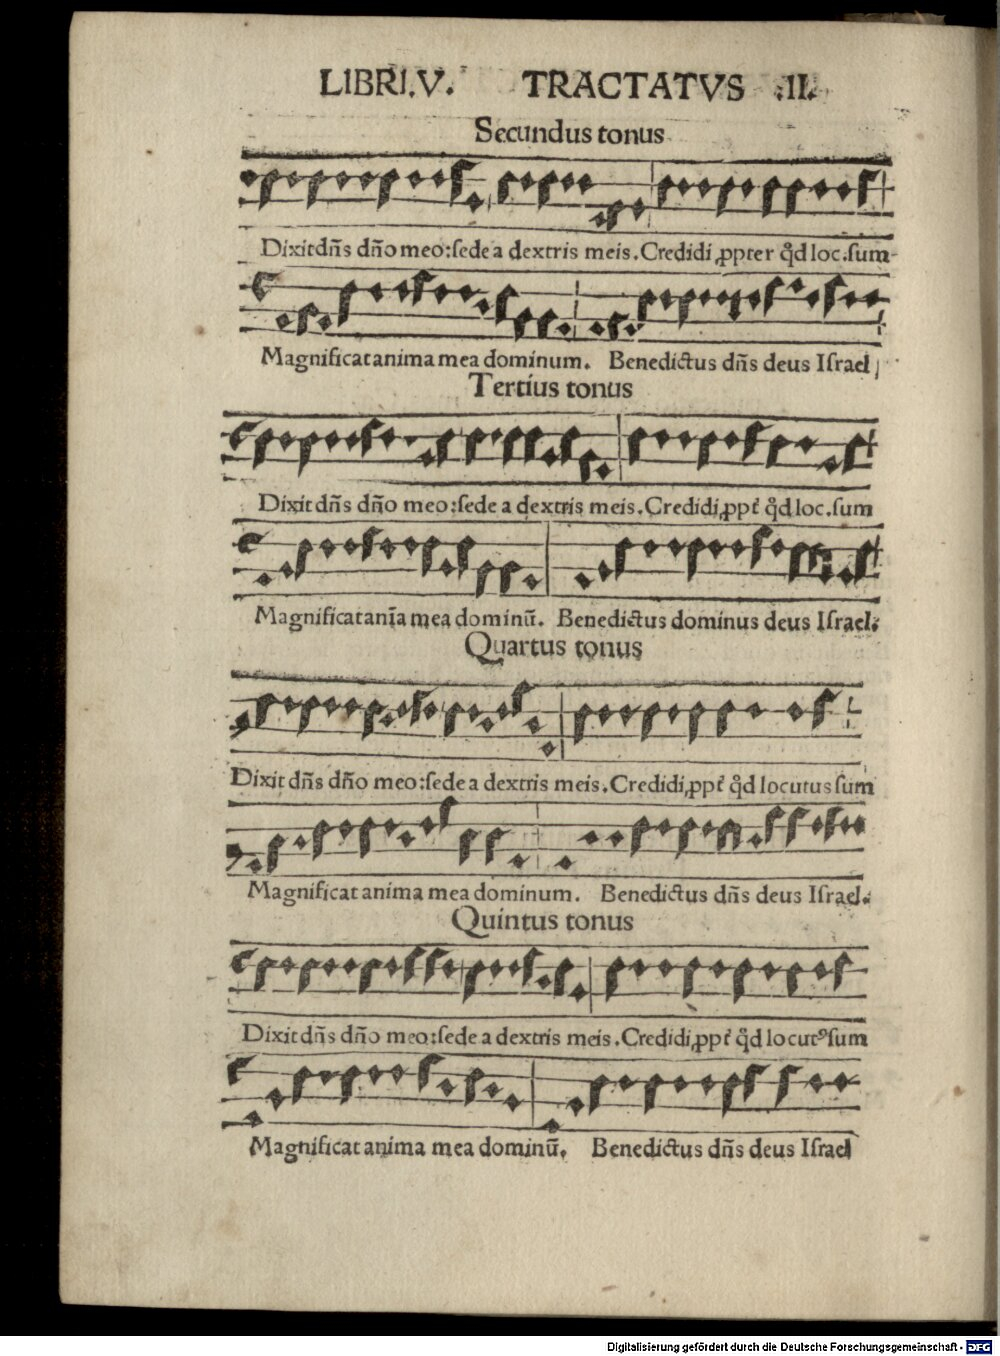 LIBRI.V. TRACTATVS .II.
Secundus tonus
Dixit dn̄s dn̄o meo:ſede a dextris meis.Credidi ꝓpter qͦd loc.ſum
Magnificat anima mea dominum. Benedictus dn̄s deus Iſrael
Tertius tonus
Dixit dn̄s dn̄o meo:ſede a dextris meis.Credidi,ꝓpt̄ qͦd loc.ſum
Magnificat anīa mea dominū. Benedictus dominus deus Iſrael.
Quartus tonus
Dixit dn̄s dn̄o meo:ſede a dextris meis.Credidi,ꝓpt̄ qͦd locutus ſum
Magnificat anima mea dominum. Benedictus dn̄s deus Iſrael.
Quintus tonus
Dixit dn̄s dn̄o meo:ſede a dextris meis.Credidi,ꝓpt̄ qͦd locutꝰ ſum
Magnificat anima mea dominū. Benedictus dn̄s deus Iſrael
Digitalisierung gefördert durch die Deutsche Forschungsgemeinschaft - DFG